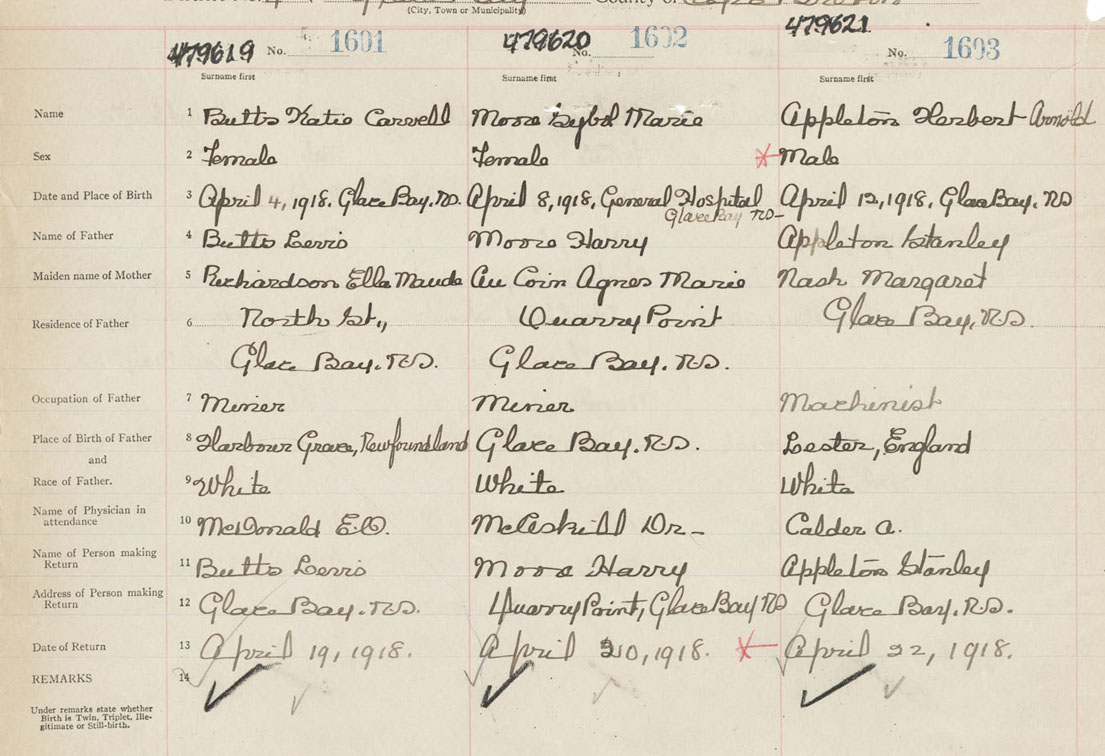 (City, Town or Municipality)
County of
479619 No. 1601
479620 No. 1602
479621 No. 1603
Surname first
Surname first
Surname first
Name 1 Butts Katie Carvell Moore Sybol Marie Appleton Herbert Arnold
Sex 2 Female Female Male
Date and Place of Birth 3 April 4, 1918. Glace Bay. N.S. April 8, 1918, General Hospital April 12, 1918, Glace Bay, N.S
Glace Bay N.S-
Name of Father 4 Butts Lewis Moore Harry Appleton Stanley
Maiden name of Mother 5 Richardson Ella Maude Au Coin Agnes Marie Nash Margaret
Residence of Father 6 North St., Quarry Point Glace Bay, N.S.
Glace Bay. N.S. Glace Bay. N.S.
Occupation of Father 7 Miner Miner Machinist
Place of Birth of Father 8 Harbour Grace, Newfoundland Glace Bay. N.S. Lester, England
and
Race of Father. 9 White White White
Name of Physician in
attendance 10 McDonald E.O. McAskill Dr- Calder A.
Name of Person making
Return 11 Butts Lewis Moore Harry Appleton Stanley
Address of Person making
Return 12 Glace Bay. N.S. Quarry Point, Glace Bay NS Glace Bay. N.S.
Date of Return 13 April 19, 1918. April 20, 1918. April 22, 1918.
REMARKS 14
Under remarks state whether
Birth is Twin, Triplet, Ille-
gitimate or Still-birth.